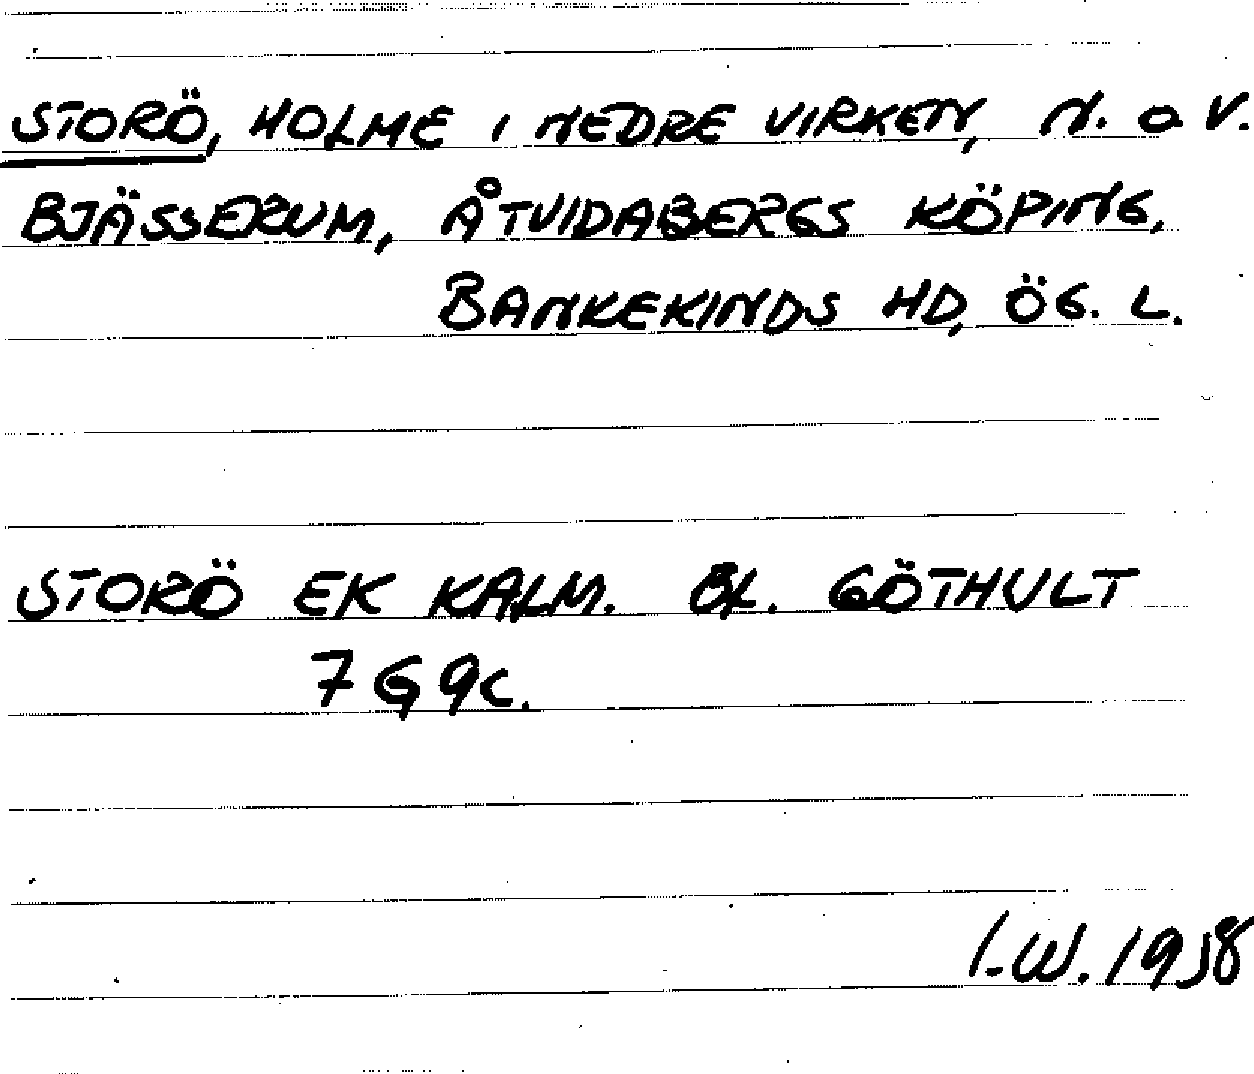 STORÖ, HOLME I NEDRE VIRKEN, N. o V.
BJÄSSERUM, ÅTVIDABERGS KÖPING,
BANKEKINDS HD, ÖG. L.
STORÖ EK KALM. BL. GÖTHULT
7G9c.
I.W. 1958